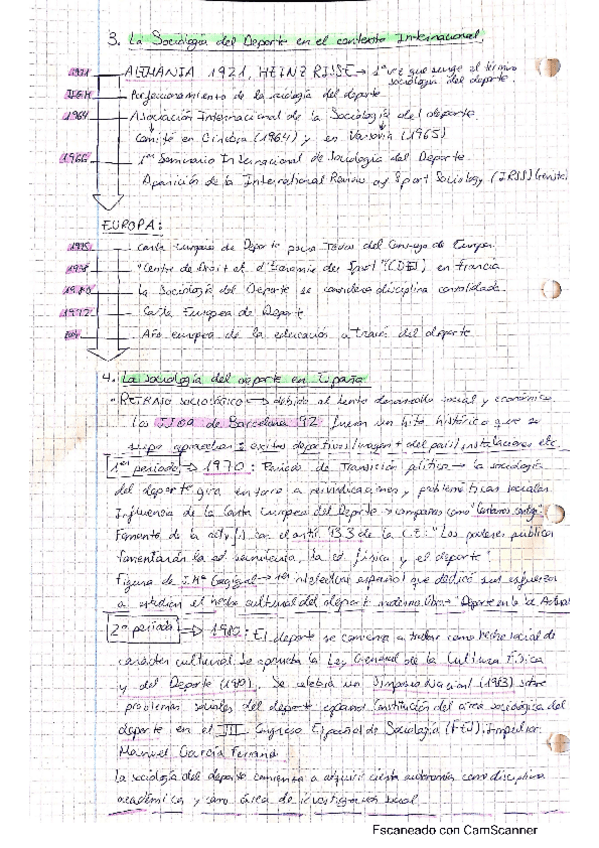 3. La Sociología del Deporte en el contexto Internacional
1921 ALEMANIA 1921, HEINZ RISSE → 1ª vez que surge el término
sociología del deporte.
II GM Perfeccionamiento de la sociología del deporte
1964 Asociación Internacional de la Sociología del deporte
Comité en Ginebra (1964) y en Varsovia (1965)
1966 1er Seminario Internacional de Sociología del Deporte
Aparición de la International Review of Sport Sociology (IRSS)
EUROPA:
1975 Carta Europea de Deporte para Todos del Consejo de Europa.
1978 "Centre de Droit et d'Economie du Sport" en Francia
1980 la Sociología del Deporte se considera disciplina consolidada.
1992 Carta Europea de Deporte
Año europeo de la educación a través del deporte
4. La sociología del deporte en España
RETRASO SOCIOLÓGICO → debido al lento desarrollo social y económico
Los JJOO de Barcelona 92 fueron un hito histórico que se
supo aprovechar: éxitos deportivos/imagen + del país/instalaciones etc.
1er periodo ⇒ 1970: Periodo de Transición política → la sociología
del deporte gira en torno a reivindicaciones y problemáticas sociales.
Influencia de la Carta Europea del Deporte → campañas como
Fomento de la act. fís. con el artíc. 43.3 de la C.E: "Los poderes públicos
fomentarán la ed. sanitaria, la ed. física y el deporte"
Figura de J. Mª Cagigal → 1er intelectual español que dedicó sus esfuerzos
a estudiar el hecho cultural del deporte moderno libro
2º periodo ⇒ 1980: El deporte se comienza a tratar como hecho social de
carácter cultural. Se aprueba la Ley General de la Cultura Física
y del Deporte (1980). Se celebra un Simposio Nacional (1983) sobre
problemas sociales del deporte español Constitución del área sociológica del
deporte en el III Congreso Español de Sociología (FES). Impulsor
Manuel García Ferrando
La sociología del deporte comienza a adquirir cierta autonomía como disciplina
académica y como área de investigación social.
Escaneado con CamScanner